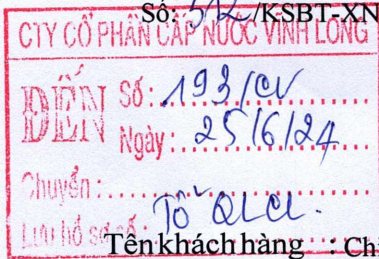 Số: 512/KSBT-XN
CTY CỔ PHẦN CẤP NƯỚC VĨNH LONG
ĐẾN
Số: 193/CV
Ngày: 25/6/24
Chuyển:
Lưu hồ sơ số: Tổ QLCL.
Tênkháchhàng : Chi